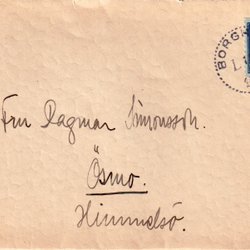 BORGH
1.
Fru Dagmar Simonsson.
Ösmo.
Himmelsö.